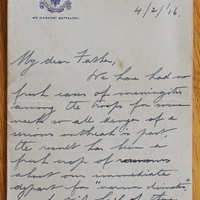 4/2/16.
My dear Father,
We have had no
fresh cases of meningitis
among the troops for some
week so all danger of a
serious outbreak is past
the result has been a
fresh crop of rumours
about our immediate
depart for "warm climates"